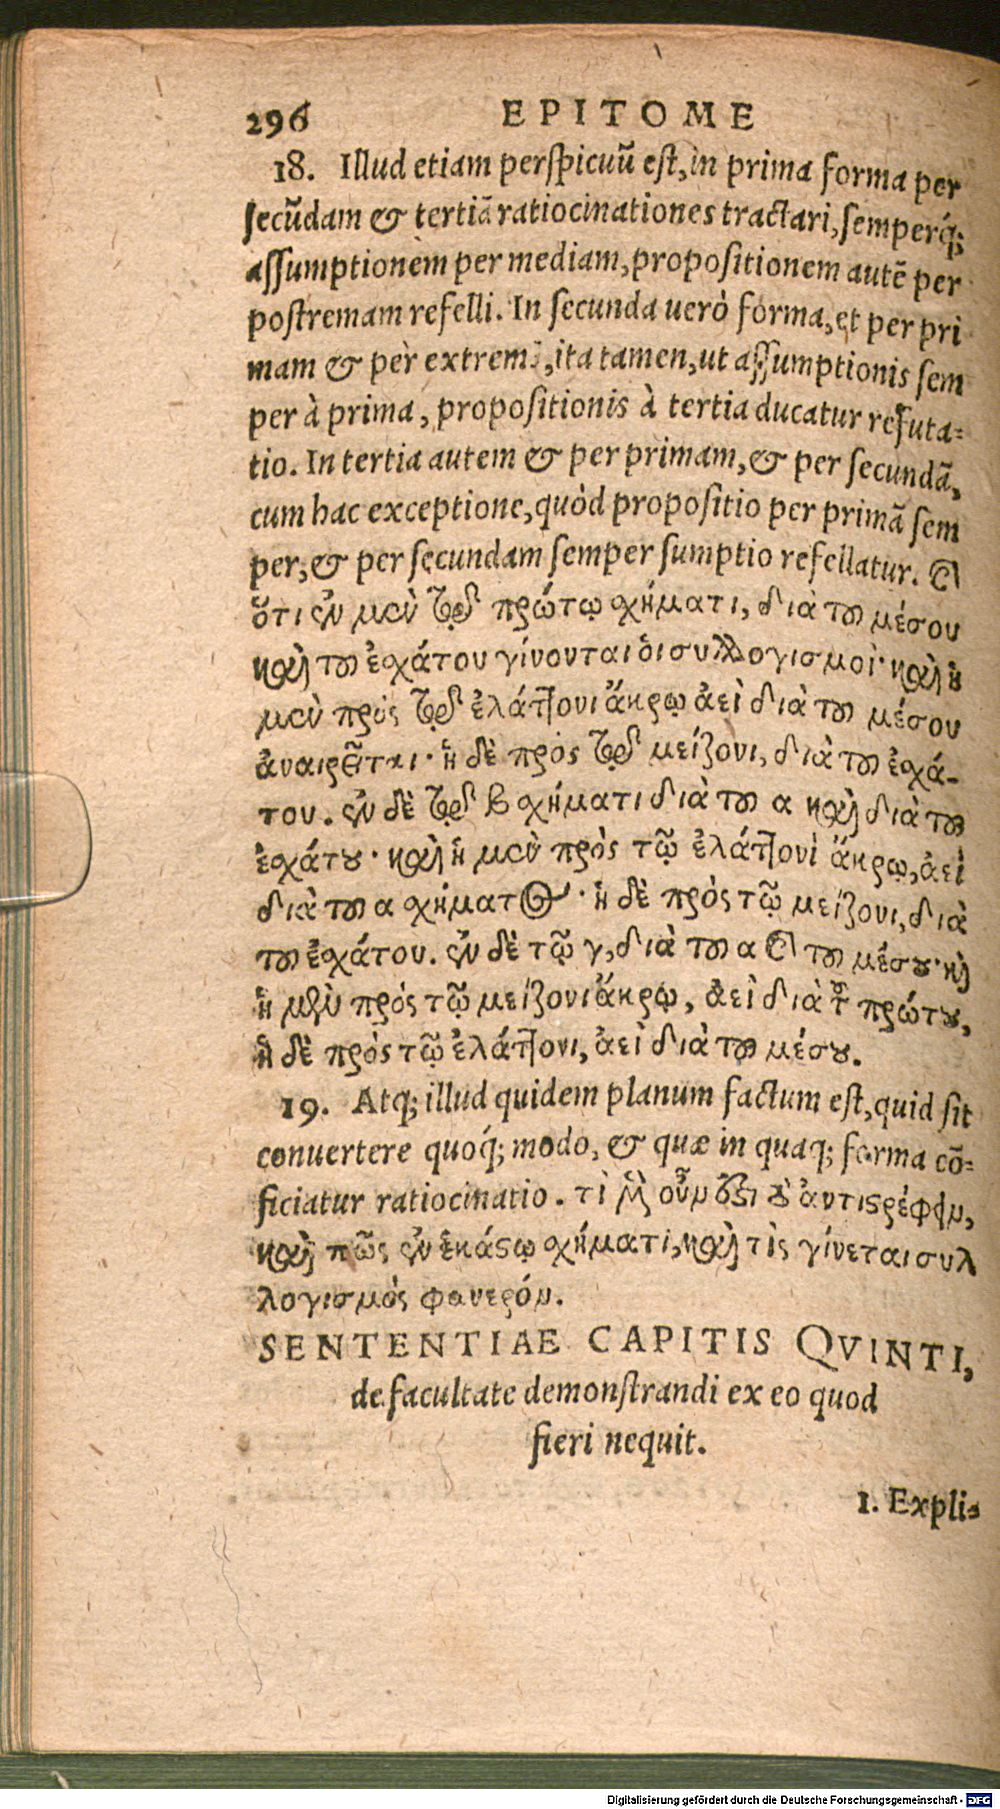 296 EPITOME
18. Illud etiam perspicuũ est, in prima forma per
secũdam & tertiã ratiocinationes tractari, semperq́;
assumptionem per mediam, propositionem autẽ per
postremam refelli. In secunda uerò forma, et per pri
mam & per extremã, ita tamen, ut assumptionis sem
per à prima, propositionis à tertia ducatur refuta-
tio. In tertia autem & per primam, & per secundã,
cum hac exceptione, quòd propositio per primã sem
per, & per secundam semper sumptio refellatur. καὶ
ὅτι ἐν μὲν τῷ πρώτῳ σχήματι, διὰ τοῦ μέσου
καὶ τοῦ ἐσχάτου γίνονται οἱ συλλογισμοί· καὶ ἡ
μὲν πρὸς τῷ ἐλάττονι ἄκρῳ ἀεὶ διὰ τοῦ μέσου
ἀναιρεῖται· ἡ δὲ πρὸς τῷ μείζονι, διὰ τοῦ ἐσχά-
του. ἐν δὲ τῷ β σχήματι διὰ τοῦ α καὶ διὰ τοῦ
ἐσχάτου· καὶ ἡ μὲν πρὸς τῷ ἐλάττονι ἄκρῳ, ἀεὶ
διὰ τοῦ α σχήματος· ἡ δὲ πρὸς τῷ μείζονι, διὰ
τοῦ ἐσχάτου. ἐν δὲ τῷ γ, διὰ τοῦ α καὶ τοῦ μέσου· καὶ
ἡ μὲν πρὸς τῷ μείζονι ἄκρῳ, ἀεὶ διὰ τοῦ πρώτου,
ἡ δὲ πρὸς τῷ ἐλάττονι, ἀεὶ διὰ τοῦ μέσου.
19. Atq; illud quidem planum factum est, quid sit
conuertere quoq́; modo, & quæ in quaq; forma cõ-
ficiatur ratiocinatio. τί μὲν οὖν ἐστι τὸ ἀντιστρέφειν,
καὶ πῶς ἐν ἑκάστῳ σχήματι, καὶ τὶς γίνεται συλ
λογισμὸς φανερόν.
SENTENTIAE CAPITIS QVINTI,
de facultate demonstrandi ex eo quod
fieri nequit.
1. Expli-
Digitalisierung gefördert durch die Deutsche Forschungsgemeinschaft - DFG